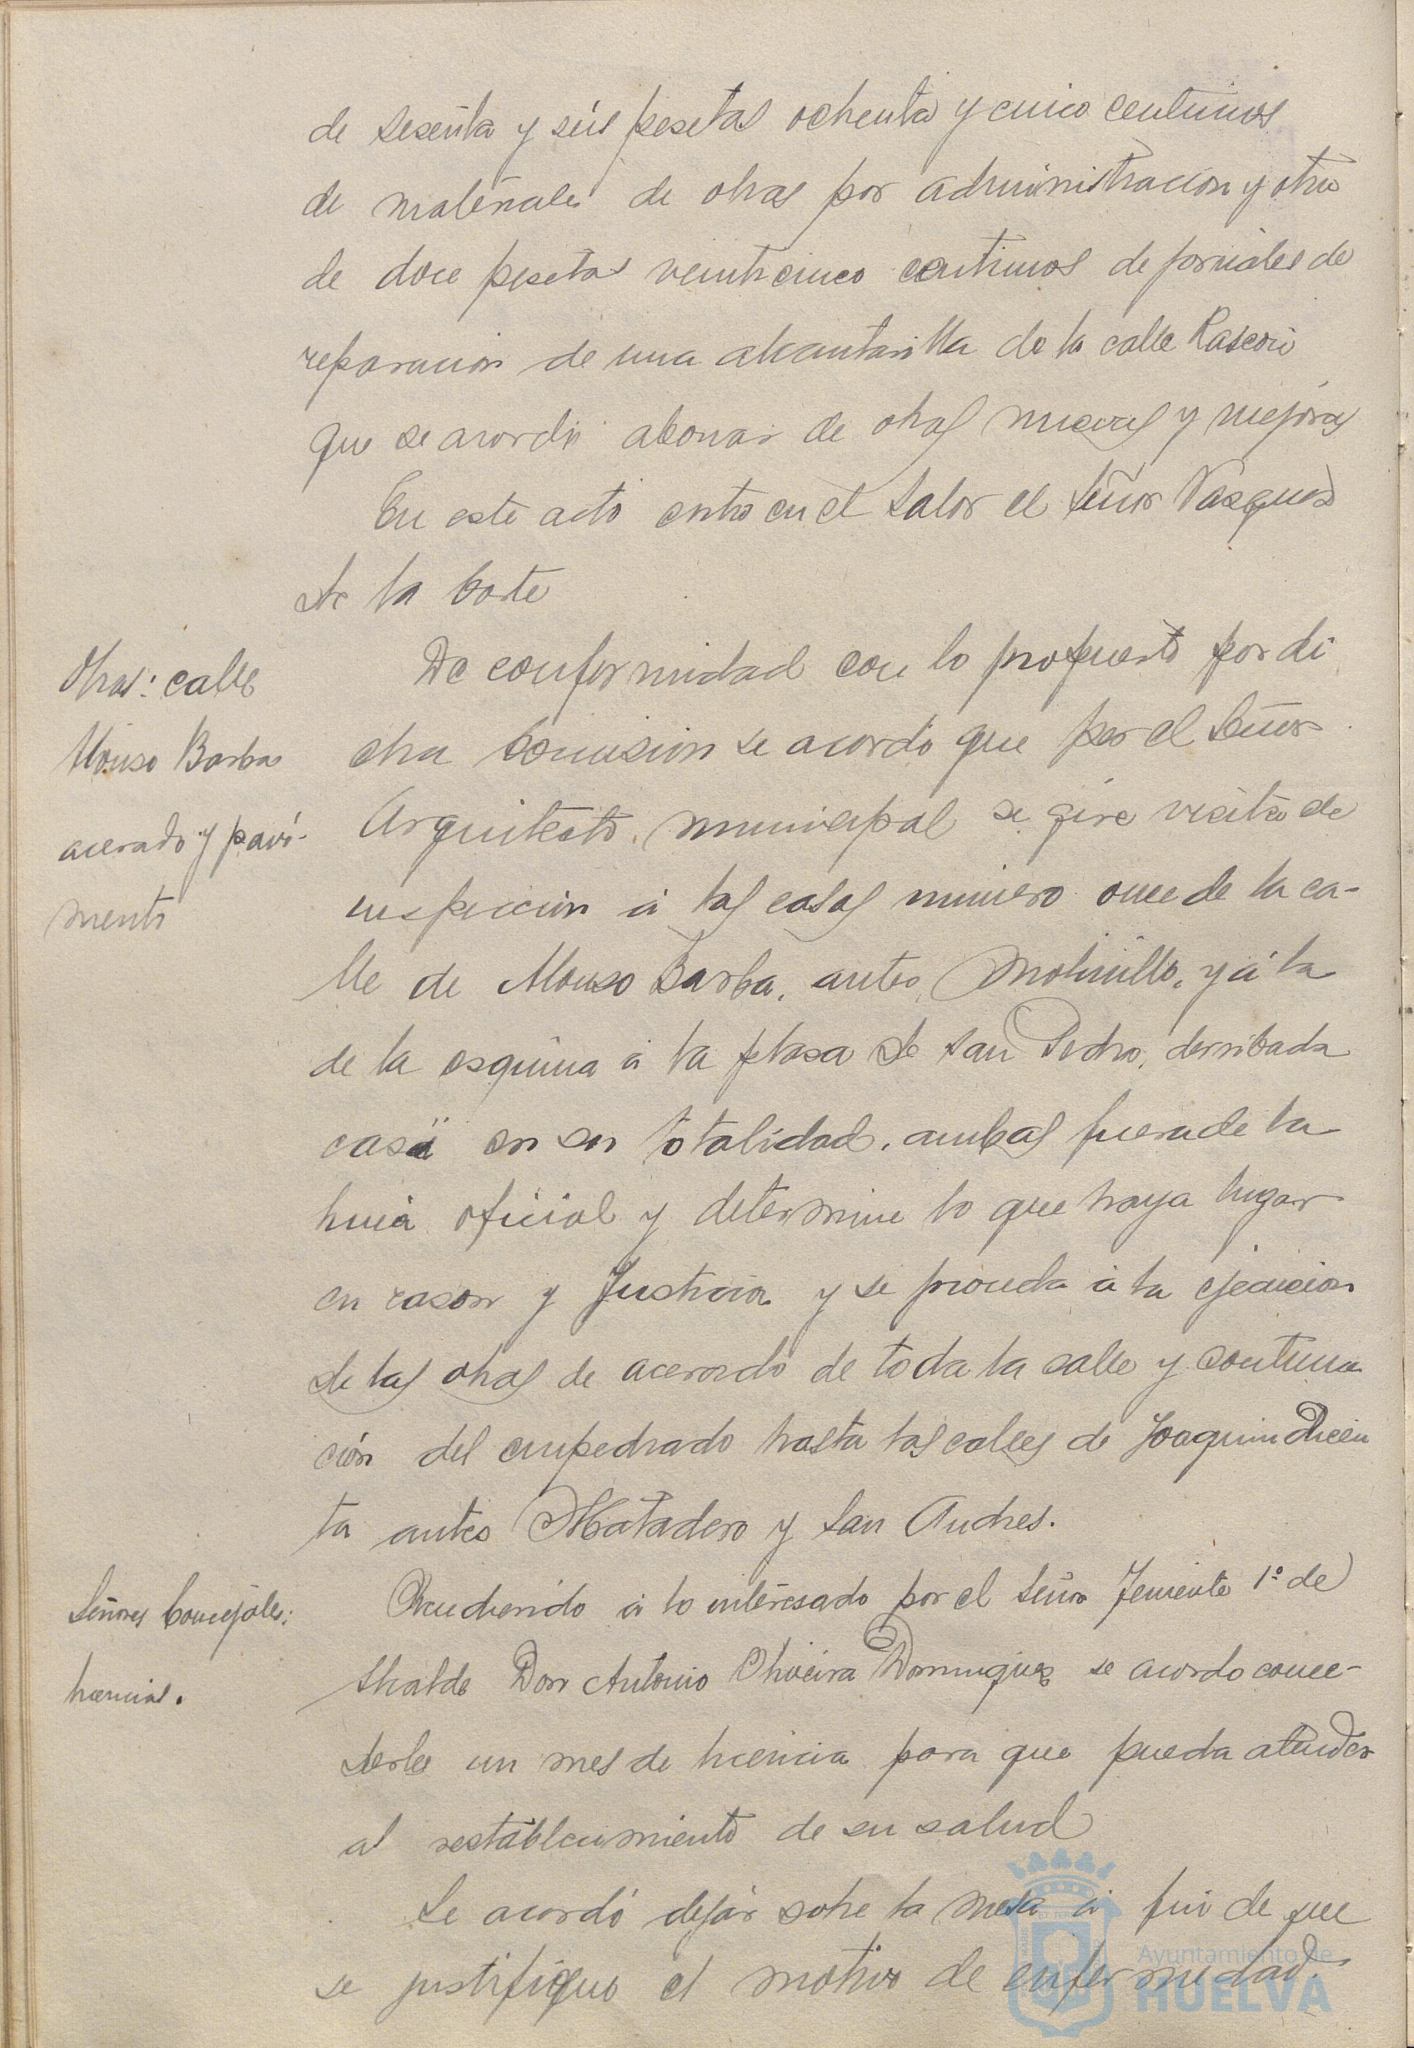 de sesenta y seis pesetas ochenta y cinco centimos
de materiales de obras por administracion y otro
de doce pesetas veinticinco centimos de jornales de
reparacion de una alcantarilla de la calle Rascon
que se acordó abonar de obras nuevas y mejoras
En este acto entro en el Salon el Señor Vasquez
de la Corte
Obras: calle
Alonso Barba
acerado y pavi-
mento
De conformidad con lo propuesto por di
cha Comision se acordó que por el Señor
Arquitecto municipal se gire visita de
inspeccion á las casas numero once de la ca-
lle de Alonso Barba, antes Molinillo, y á la
de la esquina á la plasa de San Pedro, derribada
casi en su totalidad, ambas fuera de la
linia oficial y determine lo que haya lugar
en rason y Justicia y se proceda á la ejecucion
de las obras de acerado de toda la calle y continua
ción del empedrado hasta las calles de Joaquin Dicen
ta antes Matadero y San Andres.
Señores Concejales:
licencias.
Accediendo á lo interesado por el Señor Teniente 1º de
Alcalde Don Antonio Oliveira Dominguez se acordó conce-
derle un mes de licencia para que pueda atender
al restablecimiento de su salud
Se acordó dejar sobre la mesa á fin de que
se justifique el motivo de enfermedad.
Ayuntamiento de
HUELVA